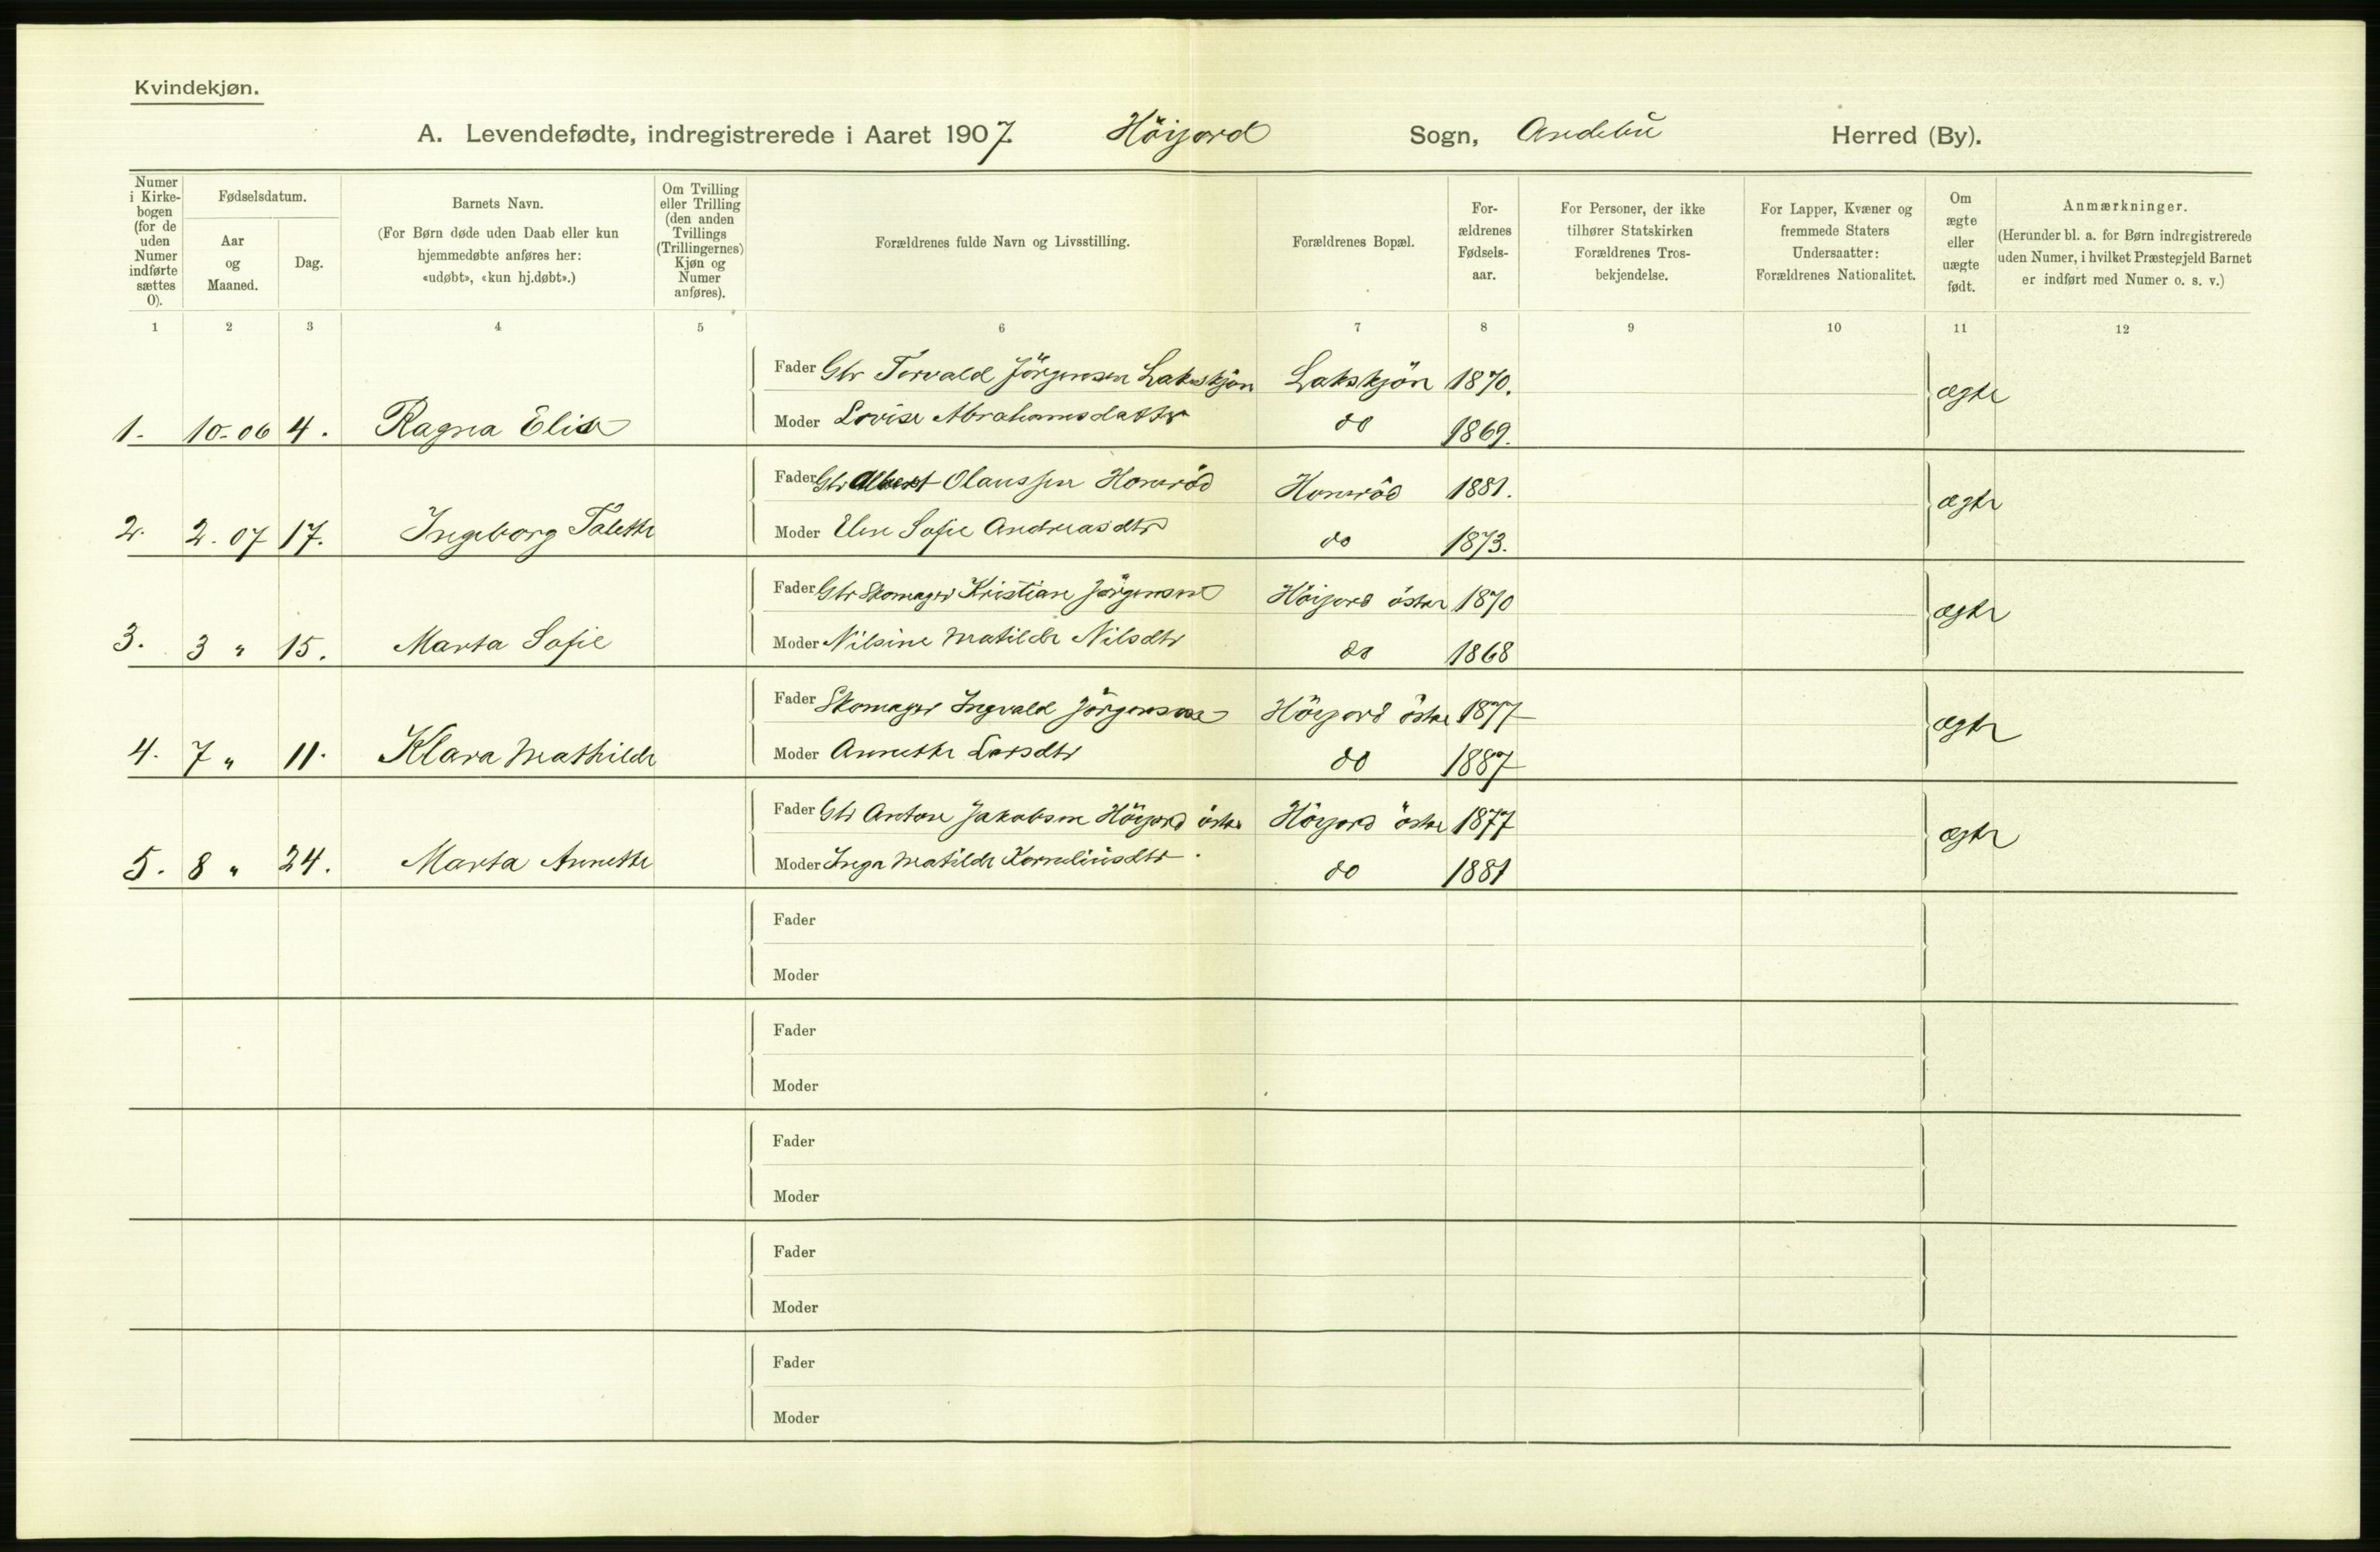 Kvindekjøn.
A. Levendefødte, indregistrerede i Aaret 1907. Höijord Sogn, Andebu Herred (By).
Numer i Kirkebogen (for de uden Numer indførte sættes 0).
Fødselsdatum.
Aar og Maaned.
Dag.
Barnets Navn.
(For Børn døde uden Daab eller kun hjemmedøbte anføres her: «udøbt», «kun hj.døbt».)
Om Tvilling eller Trilling (den anden Tvillings (Trillingernes) Kjøn og Numer anføres).
Forældrenes fulde Navn og Livsstilling.
Forældrenes Bopæl.
Forældrenes Fødselsaar.
For Personer, der ikke tilhører Statskirken Forældrenes Trosbekjendelse.
For Lapper, Kvæner og fremmede Staters Undersaatter: Forældrenes Nationalitet.
Om ægte eller uægte født.
Anmærkninger.
(Herunder bl. a. for Børn indregistrerede uden Numer, i hvilket Præstegjeld Barnet er indført med Numer o. s. v.)
1 2 3 4 5 6 7 8 9 10 11 12
Fader Gbr Torvald Jörgensen Lakskjön Lakskjön 1870. ægte
1. 10-06 4. Ragna Elise Moder Lovise Abrahamsdatter do 1869.
Fader Gbr Albert Olaussen Honeröd Honeröd 1881. ægte
2. 2. 07 17. Ingeborg Talette Moder Elen Sofie Andreasdtr do 1873.
Fader Gbr Skomager Kristian Jörgensen Höijord östre 1870 ægte
3. 3 " 15. Marta Sofie Moder Nilsine Matilde Nilsdtr do 1868
Fader Skomager Ingvald Jörgensen Höijord östre 1877 ægte
4. 7 " 11. Klara Mathilde Moder Annette Larsdtr do 1887
Fader Gbr Anton Jakobsen Höijord östre Höijord östre 1877 ægte
5. 8 " 24. Marta Annette Moder Inga Matilde Korneliusdtr. do 1881
Fader
Moder
Fader
Moder
Fader
Moder
Fader
Moder
Fader
Moder